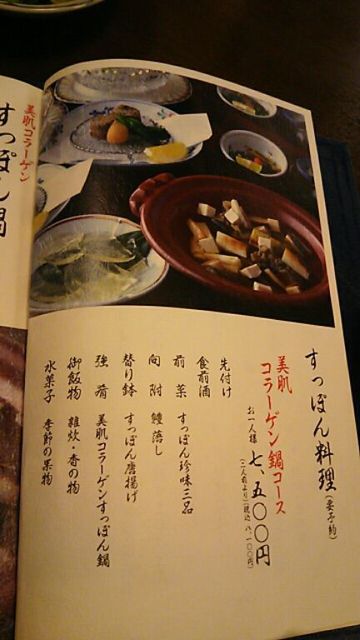 すっぽん料理(要予約)
美肌
コラーゲン鍋コース
お一人様 七、五〇〇円
(二人前より)(税込 八、一〇〇円)
先付け
食前酒
前菜 すっぽん珍味三品
向附 鱧落し
替り鉢 すっぽん唐揚げ
強肴 美肌コラーゲンすっぽん鍋
御飯物 雑炊・香の物
水菓子 季節の果物
美肌コラーゲン
すっぽん鍋